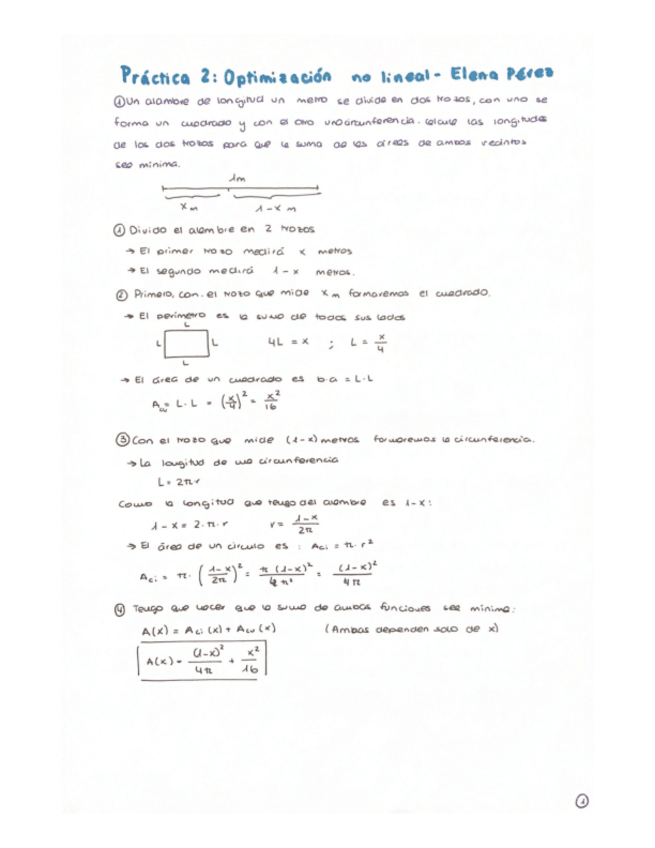 Práctica 2: Optimización no lineal - Elena Pérez
① Un alambre de longitud un metro se divide en dos trozos, con uno se
forma un cuadrado y con el otro una circunferencia. Calcule las longitudes
de los dos trozos para que la suma de las áreas de ambos recintos
sea mínima.
1m
x m 1-x m
① Divido el alambre en 2 trozos
→ El primer trozo medirá x metros
→ El segundo medirá 1-x metros.
② Primero, con el trozo que mide x m formaremos el cuadrado.
→ El perímetro es la suma de todos sus lados
L
L L 4L = x ; L = x/4
L
→ El área de un cuadrado es b·a = L·L
A_cu = L·L = (x/4)² = x²/16
③ Con el trozo que mide (1-x) metros formaremos la circunferencia.
→ La longitud de una circunferencia
L = 2π·r
Como la longitud que tengo del alambre es 1-x:
1-x = 2·π·r r = (1-x)/2π
→ El área de un círculo es: A_ci = π·r²
A_ci = π·((1-x)/2π)² = π(1-x)²/4π² = (1-x)²/4π
④ Tengo que hacer que la suma de ambas funciones sea mínima:
A(x) = A_ci(x) + A_cu(x) (Ambas dependen solo de x)
A(x) = (1-x)²/4π + x²/16
①